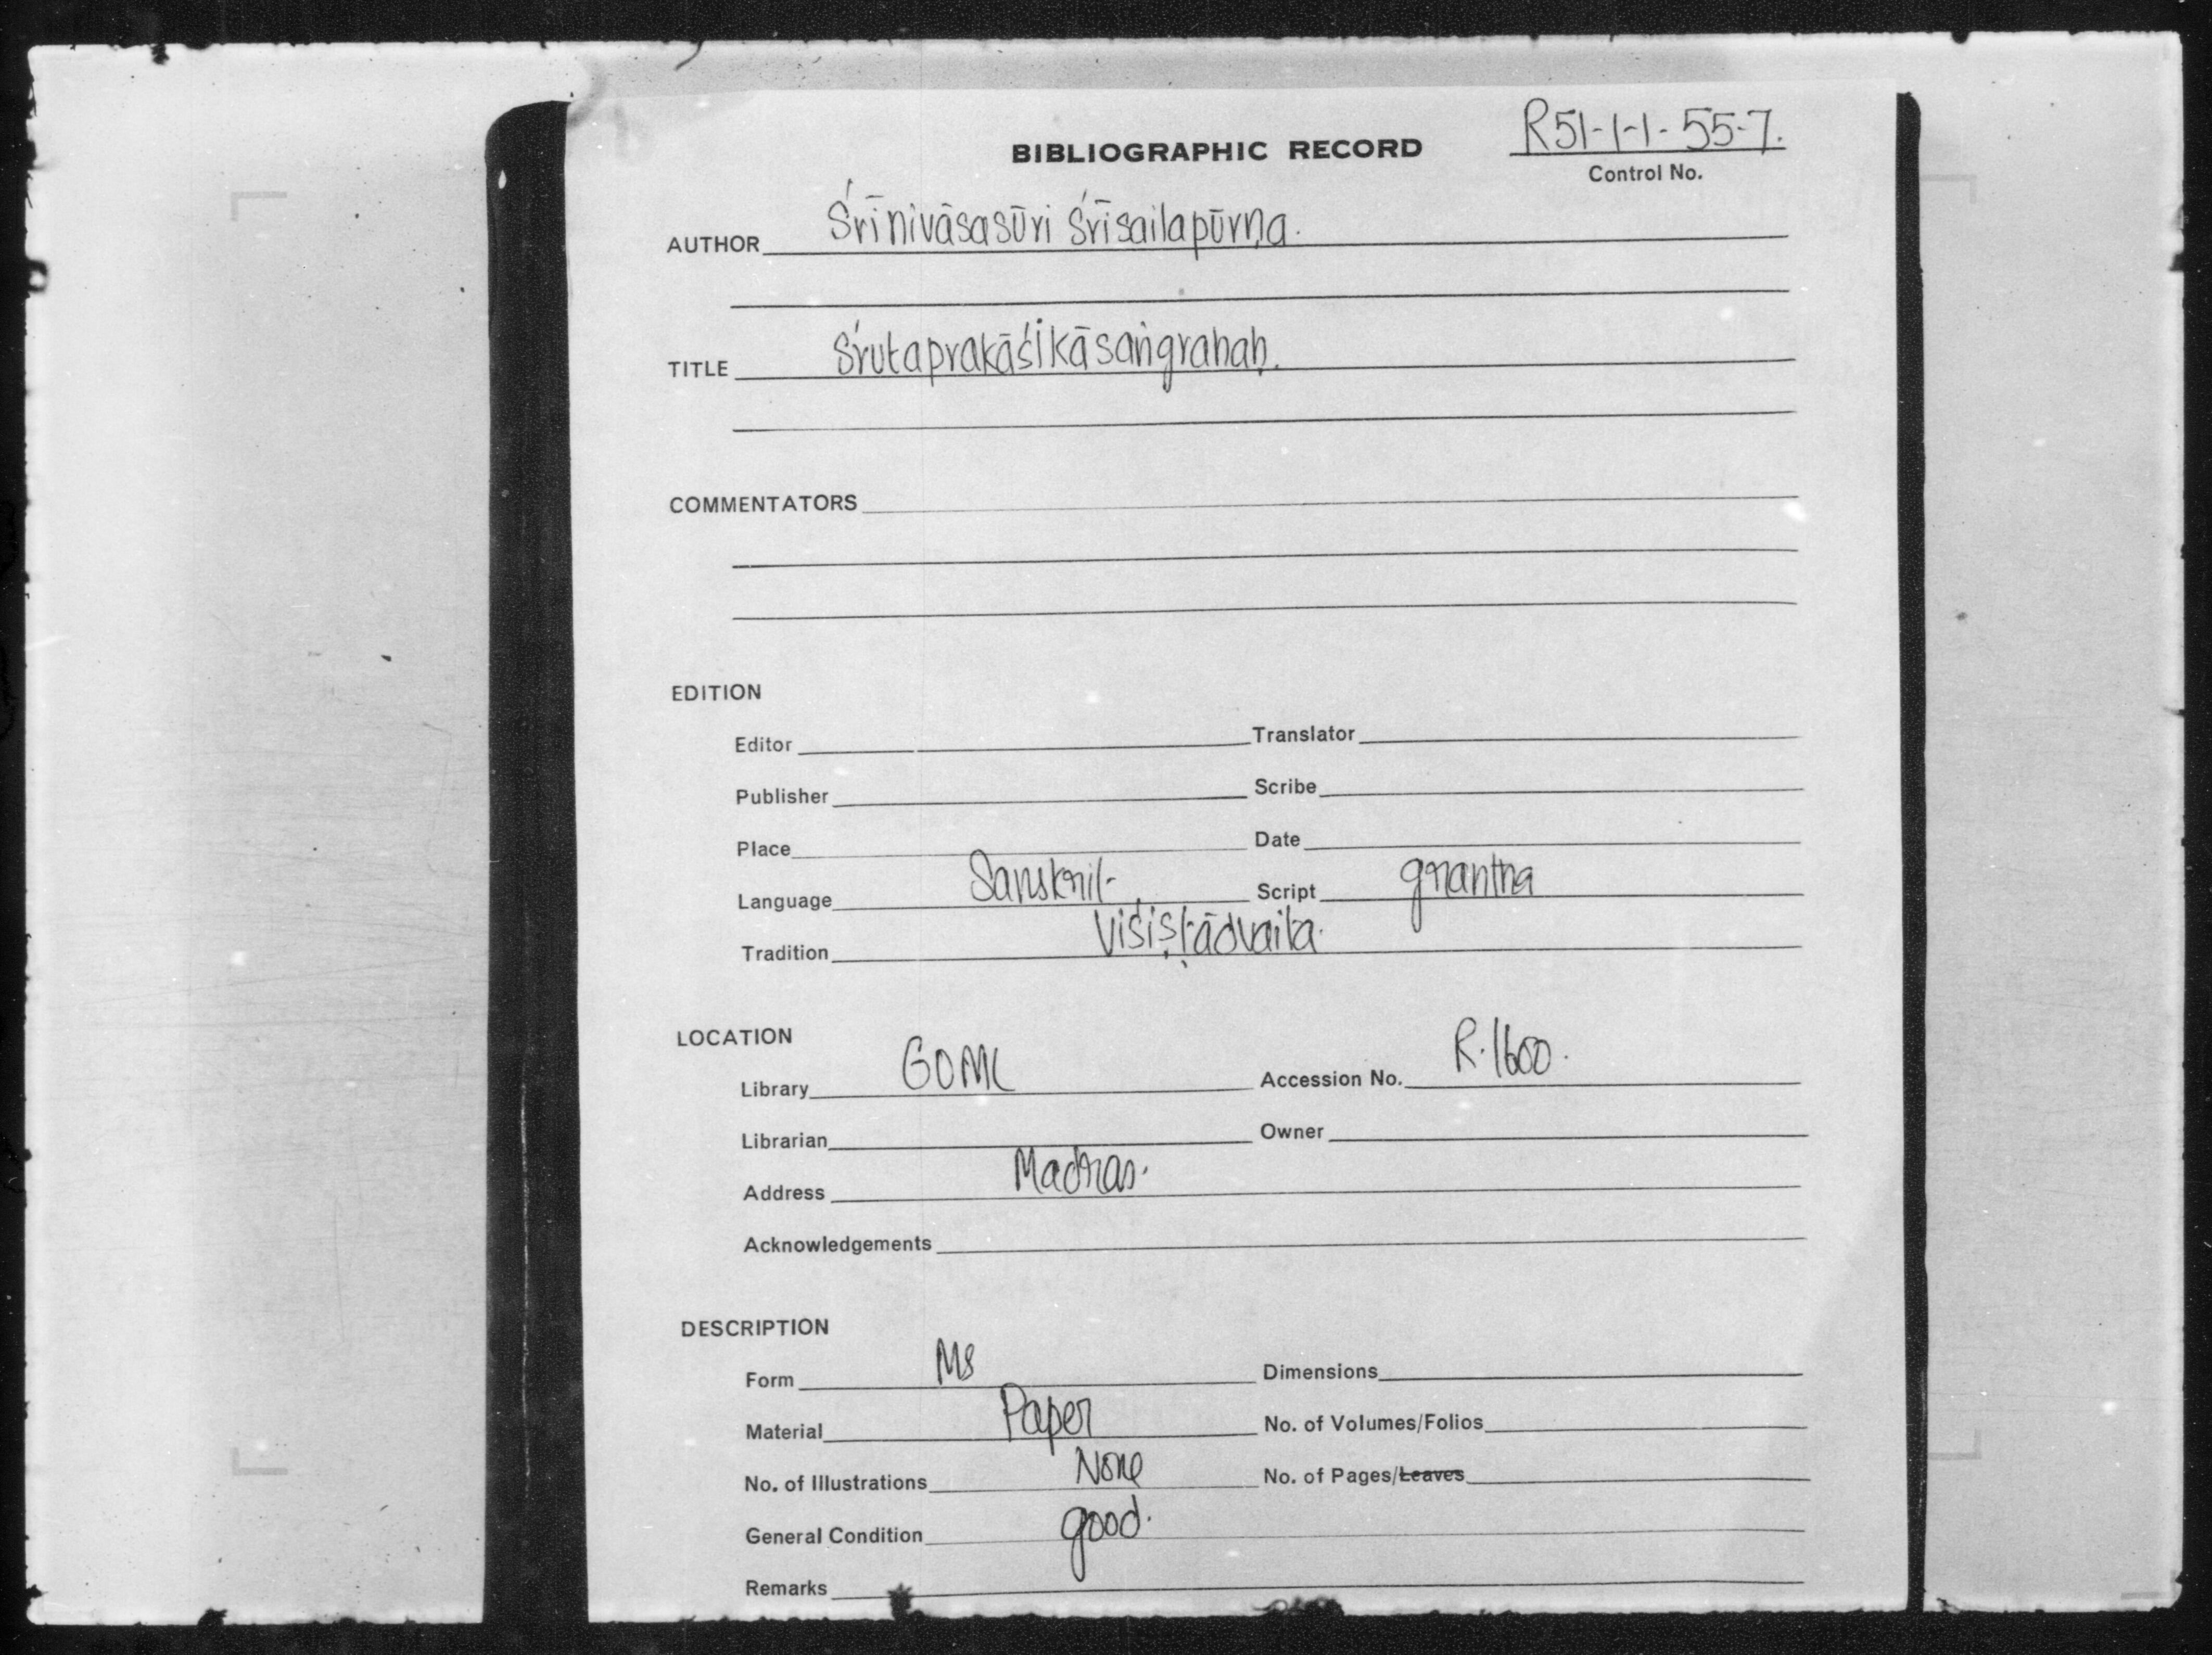 R51-1-1-55-7.
BIBLIOGRAPHIC RECORD
Control No.
AUTHOR Śrīnivāsasūri Śrīsailapūrṇa.
TITLE Śrutaprakāśikāsaṅgrahaḥ.
COMMENTATORS
EDITION
Editor Translator
Publisher Scribe
Place Date
Language Sanskrit Script grantha
Tradition Viśiṣṭādvaita.
LOCATION
Library GOML Accession No. R.1600.
Librarian Owner
Address Madras.
Acknowledgements
DESCRIPTION
Form Ms Dimensions
Material Paper No. of Volumes/Folios
No. of Illustrations None No. of Pages/Leaves
General Condition good.
Remarks